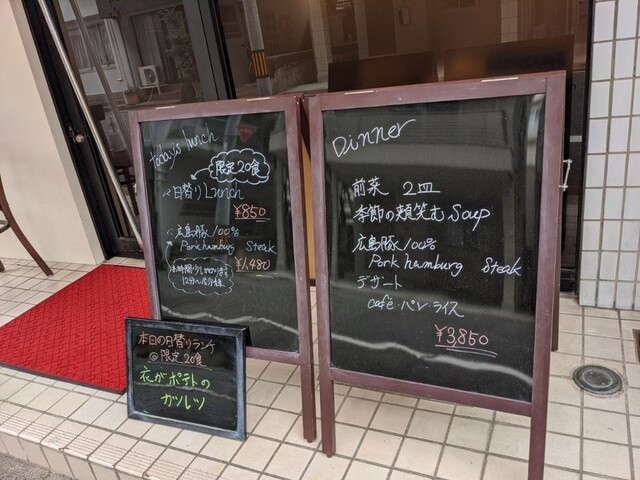 todays lunch
限定20食
日替りLunch
¥850
広島豚100%
Pork hamburg Steak
¥1,480
お時間少しかかります
12分〜15分程
本日の日替りランチ
◎限定20食
衣がポテトの
カツレツ
Dinner
前菜 2皿
季節の頬笑む Soup
広島豚100%
Pork hamburg Steak
デザート
café・パン・ライス
¥3,850